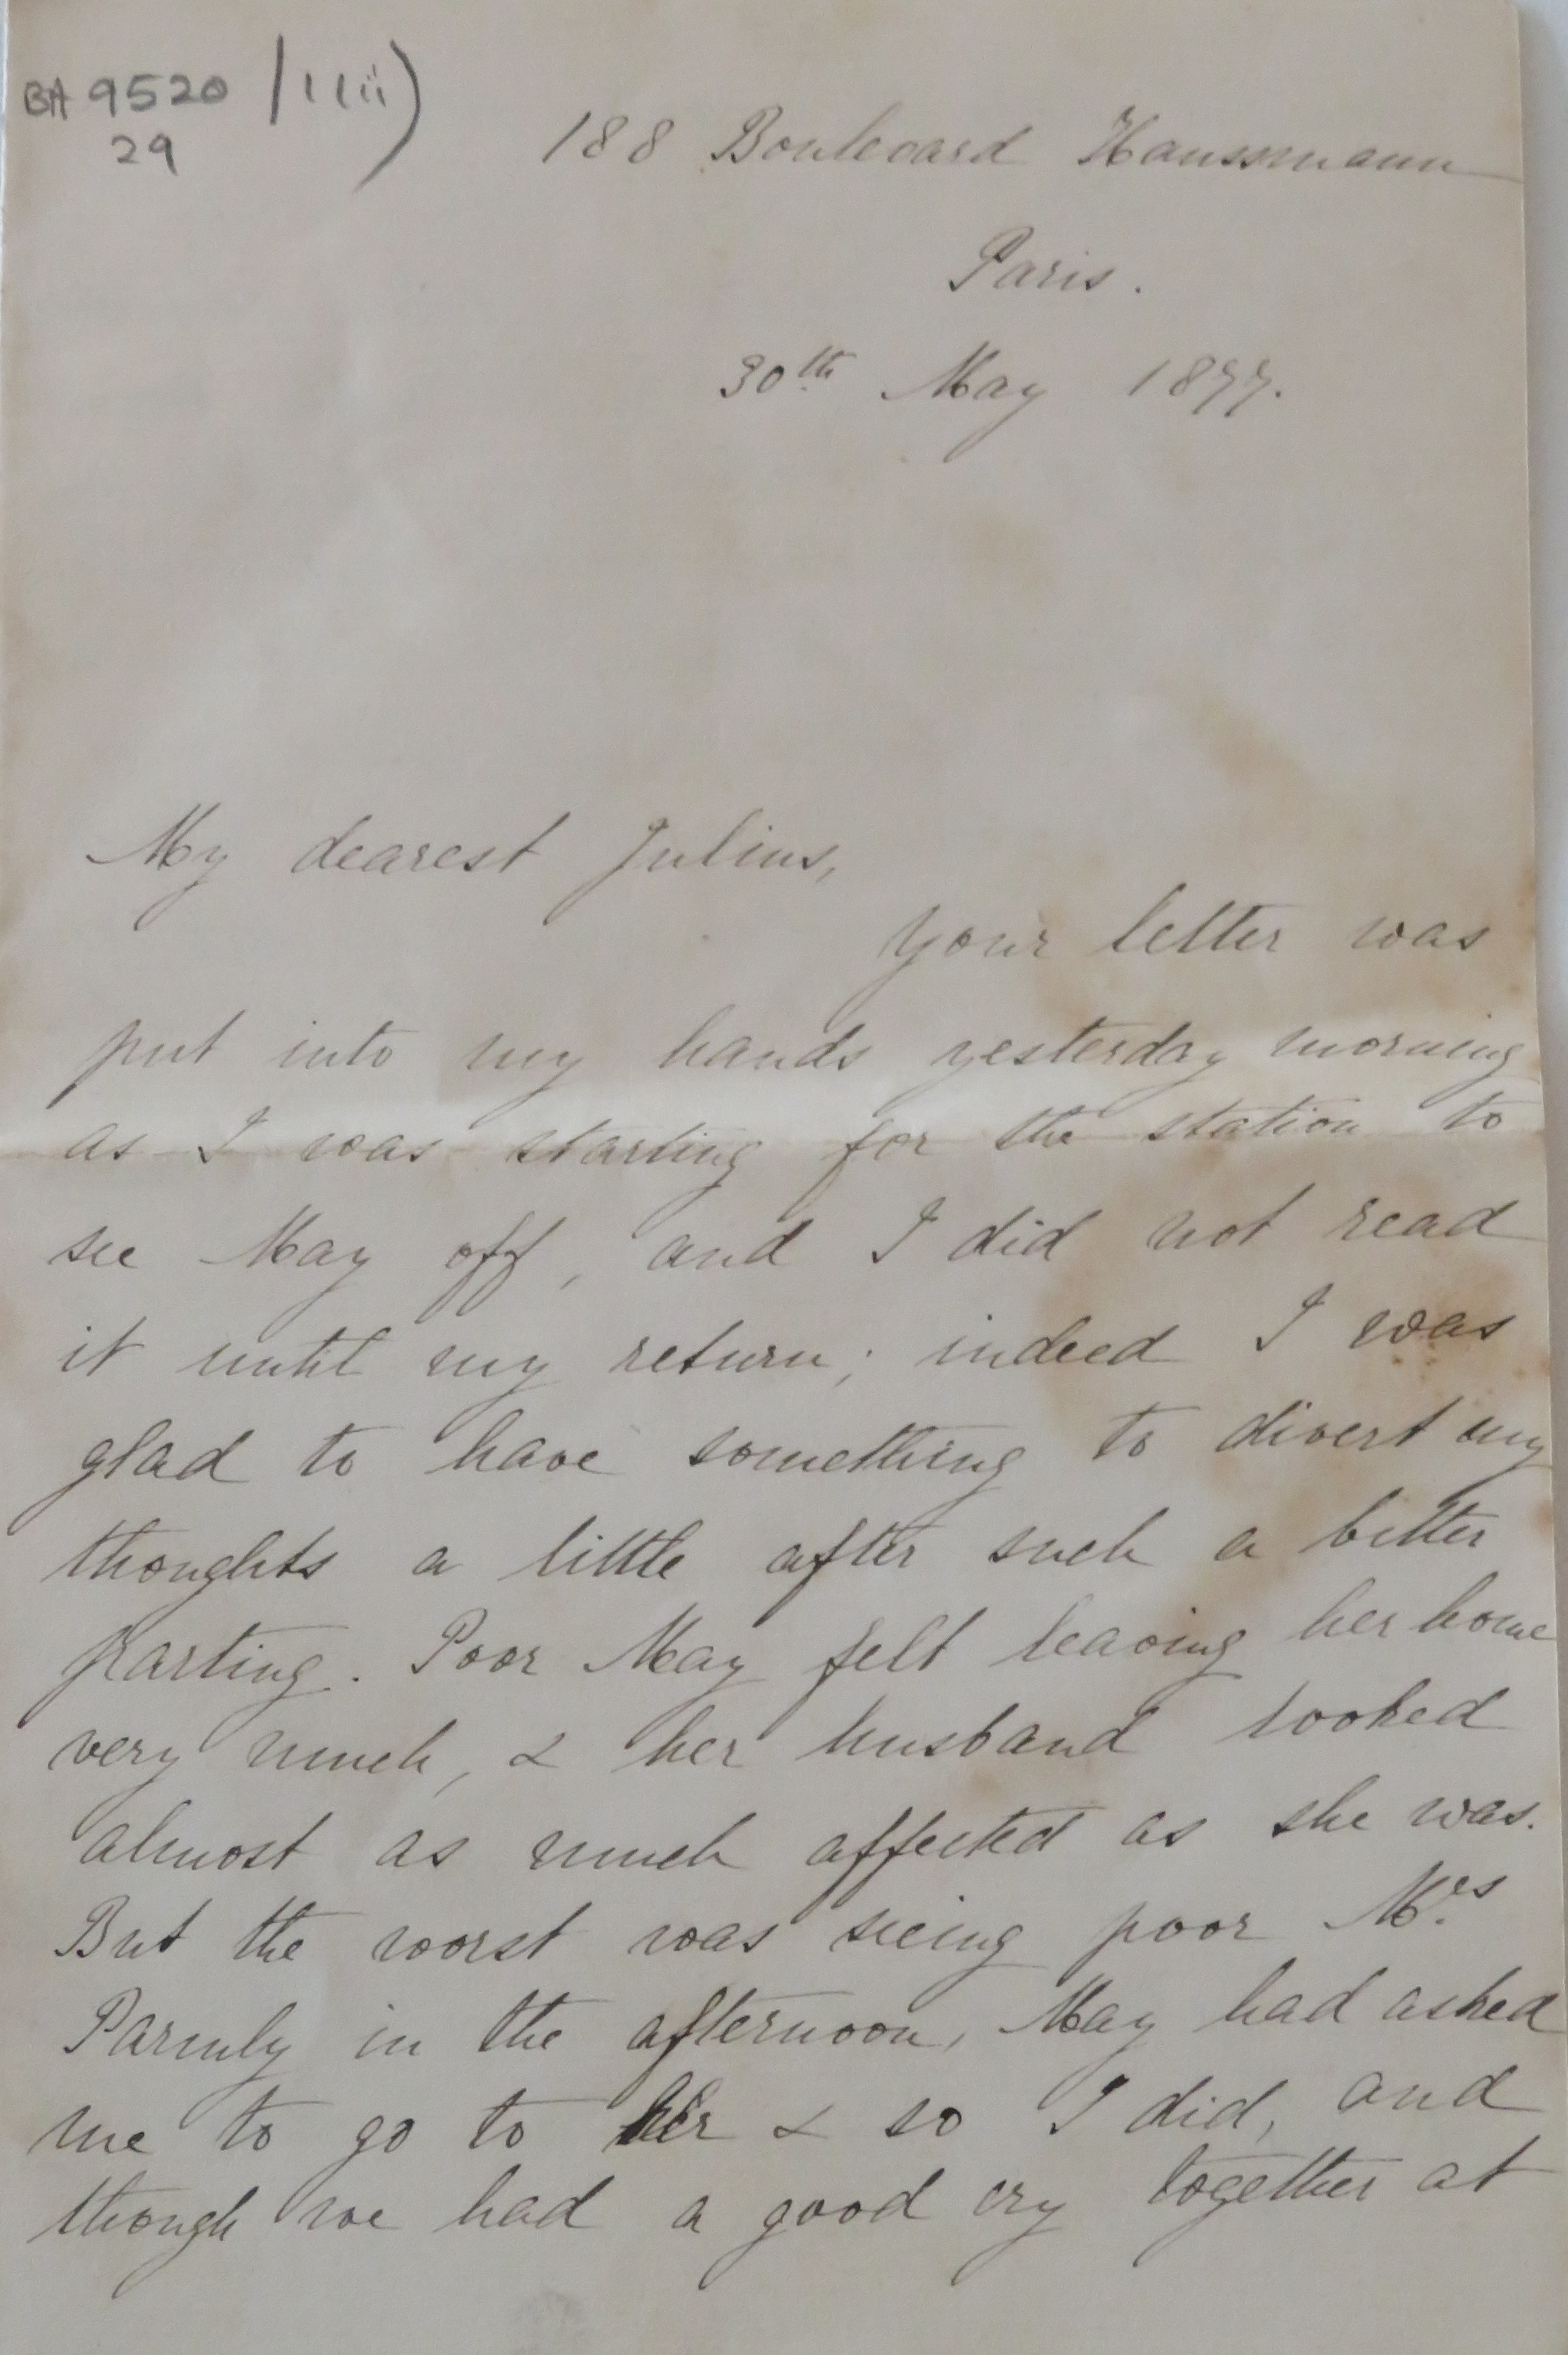 BA 9520 / 1 (iii)
29
188 Boulevard Haussmann
Paris.
30th May 1877.
My dearest Julius,
Your letter was
put into my hands yesterday morning
as I was starting for the station to
see May off, and I did not read
it until my return; indeed I was
glad to have something to divert my
thoughts a little after such a bitter
parting. Poor May felt leaving her home
very much, & her husband looked
almost as much affected as she was.
But the worst was seeing poor Mrs
Parmly in the afternoon, May had asked
me to go to her & so I did, and
though we had a good cry together at